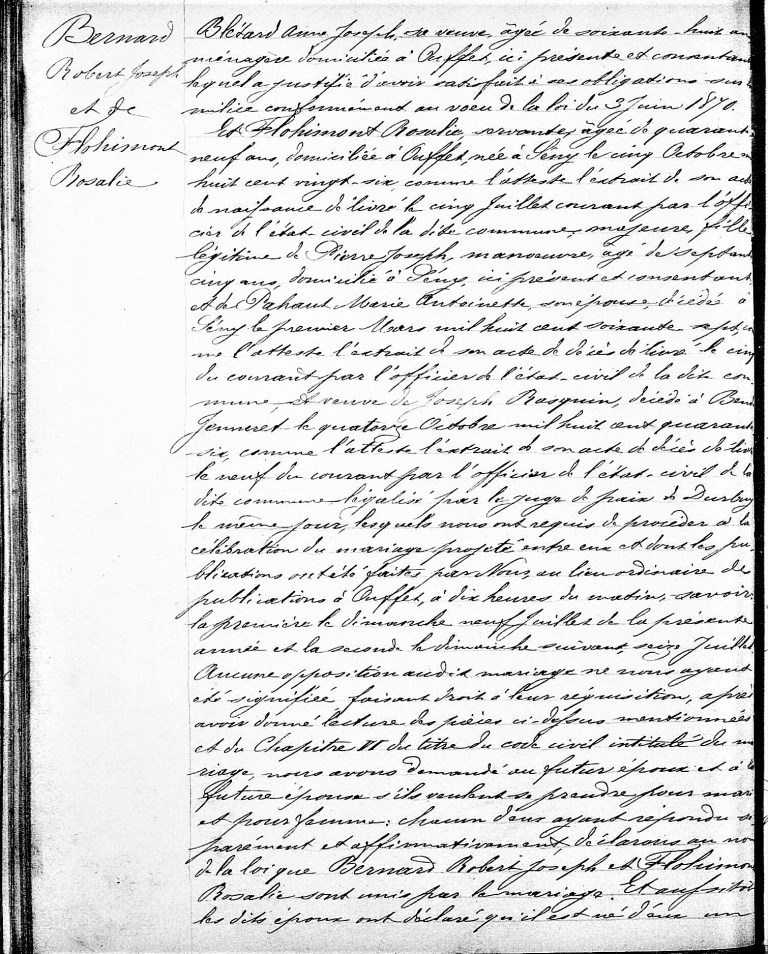 Bernard
Robert Joseph
et de
Flohimont
Rosalie
Blétard Anne Joseph, sa veuve, âgée de soixante-huit an
ménagère domiciliée à Ouffet, ici présente et consentan
lequel a justifié d'avoir satisfait à ses obligations sur
milice conformément au voeu de la loi du 3 Juin 1870.
Et Flohimont Rosalie, servante, âgée de quarant
neuf ans, domiciliée à Ouffet, née à Sény le cinq Octobre
huit cent vingt-six, comme l'atteste l'extrait de son act
de naissance délivré le cinq Juillet courant par l'offi
cier de l'état civil de la dite commune, majeure, fille
légitime de Pierre Joseph, manoeuvre, âgé de septant
cinq ans, domicilié à Sény, ici présent et consentant
et de Pahaut Marie Antoinette, son épouse, décédée à
Sény le premier Mars mil huit cent soixante sept, co
me l'atteste l'extrait de son acte de décès délivré le cinq
du courant par l'officier de l'état-civil de la dite com
mune, et veuve de Joseph Rasquin, décédé à Bend
Jenneret le quatorze Octobre mil huit cent quarant
six, comme l'atteste l'extrait de son acte de décès déliv
le neuf du courant par l'officier de l'état-civil de la
dite commune légalisé par le juge de paix de Durbuy
le même jour, lesquels nous ont requis de procéder à la
célébration du mariage projeté entre eux et dont les pu
blications ont été faites par Nous, au lieu ordinaire des
publications à Ouffet, à dix heures du matin, savoir:
la première le dimanche neuf Juillet de la présente
année et la seconde le dimanche suivant seize Juillet
Aucune opposition audit mariage ne nous ayant
été signifiée faisant droit à leur réquisition, après
avoir donné lecture des pièces ci-dessus mentionnées
et du Chapitre VI du titre du code civil intitulé du ma
riage, nous avons demandé au futur époux et à la
future épouse s'ils veulent se prendre pour mari
et pour femme: chacun d'eux ayant répondu sé
parément et affirmativement déclarons au no
de la loi que Bernard Robert Joseph et Flohimon
Rosalie sont unis par le mariage. Et aussitôt
les dits époux ont déclaré qu'il est né d'eux un